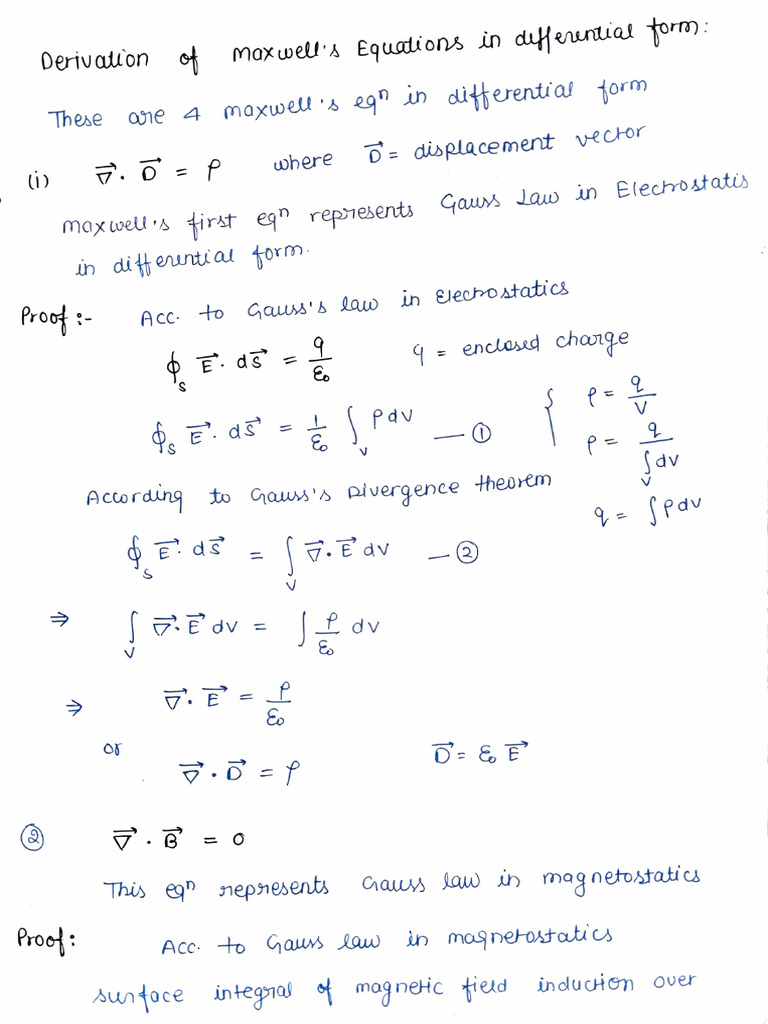 Derivation of Maxwell's Equations in differential form:
These are 4 maxwell's eqⁿ in differential form
(i) ∇⃗. D⃗ = ρ where D⃗ = displacement vector
maxwell's first eqⁿ represents Gauss Law in Electrostatis
in differential form.
Proof:- Acc. to Gauss's law in Electrostatics
∮_S E⃗. dS⃗ = q/ε₀ q = enclosed charge
∮_S E⃗. dS⃗ = 1/ε₀ ∫_V ρdv — ① { ρ = q/V
ρ = q/∫_V dv
According to Gauss's Divergence theorem
q = ∫ρdv
∮_S E⃗. dS⃗ = ∫_V ∇⃗. E⃗ dv — ②
⇒ ∫_V ∇⃗. E⃗ dv = ∫ ρ/ε₀ dv
⇒ ∇⃗. E⃗ = ρ/ε₀
or ∇⃗. D⃗ = ρ D⃗ = ε₀ E⃗
② ∇⃗. B⃗ = 0
This eqⁿ represents Gauss law in magnetostatics
Proof: Acc. to Gauss law in magnetostatics
surface integral of magnetic field induction over